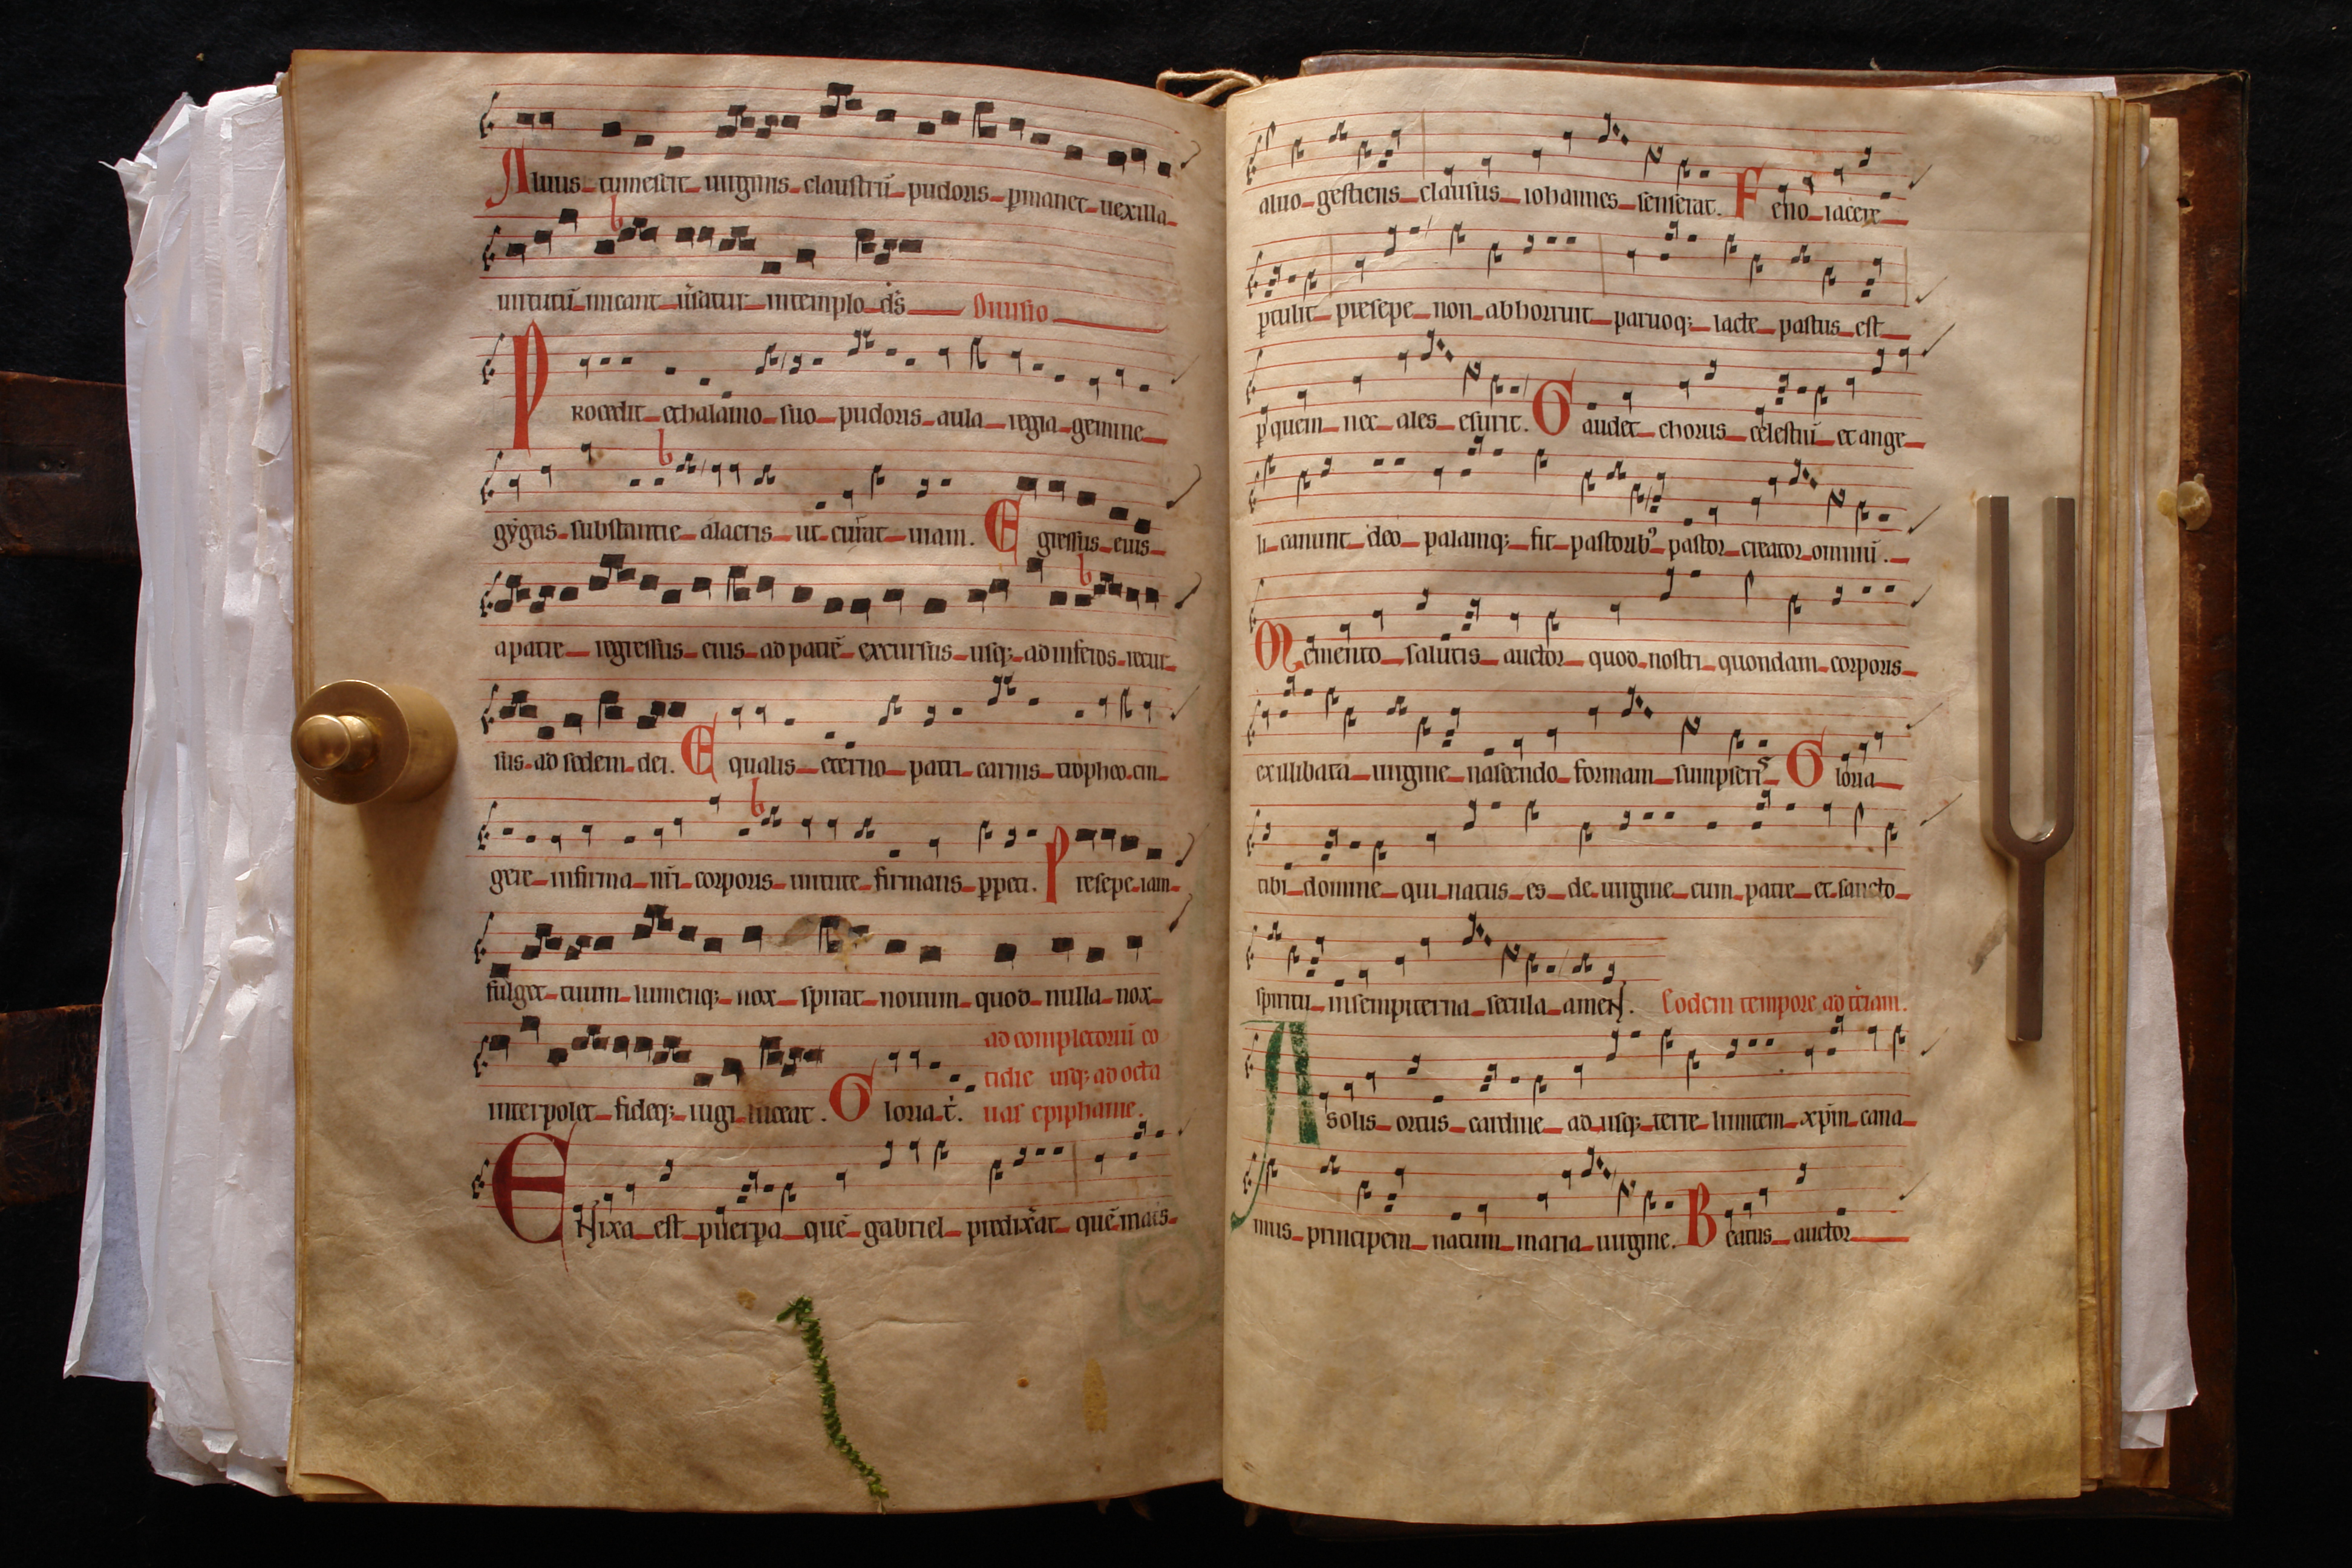 Aluus tumescit uirginis claustrū pudoris pmanet uexilla
uirtutū micant ūsatur intemplo dš Diuisio
Procedit ethalamo suo pudoris aula regia gemine
gẏgas substantie alacris ut currat uiam. Egressus eius
apatre regressus eius ad patrē excursus usq; ad inferos recur
sus ad sedem dei. Equalis eterno patri carnis tropheo cin
gere infirma nr̄i corporis uirtute firmans ppeti. Presepe iam
fulget tuum lumenq; nox spirat nouum quod nulla nox
interpolet fideq; iugi luceat. Gloria t̄.
ad completoriū co
tidie usq; ad octa
uas epiphanie.
Enixa est puerpa quē gabriel predixerat quē matris
aluo gestiens clausus iohannes senserat. Feno iacere
ptulit presepe non abhorruit paruoq; lacte pastus est
p quem nec ales esurit. Gaudet chorus celestiū et ange
li canunt deo palamq; fit pastorib⁹ pastor creator omniū.
Memento salutis auctor quod nostri quondam corporis
exillibata uirgine nascendo formam sumpseris Gloria
tibi domine qui natus es de uirgine cum patre et sancto
spiritu insempiterna secula amen. Eodem tempore ad t̄ciam.
A solis ortus cardine ad usq; terre limitem xp̄m cana
mus principem natum maria uirgine. Beatus auctor